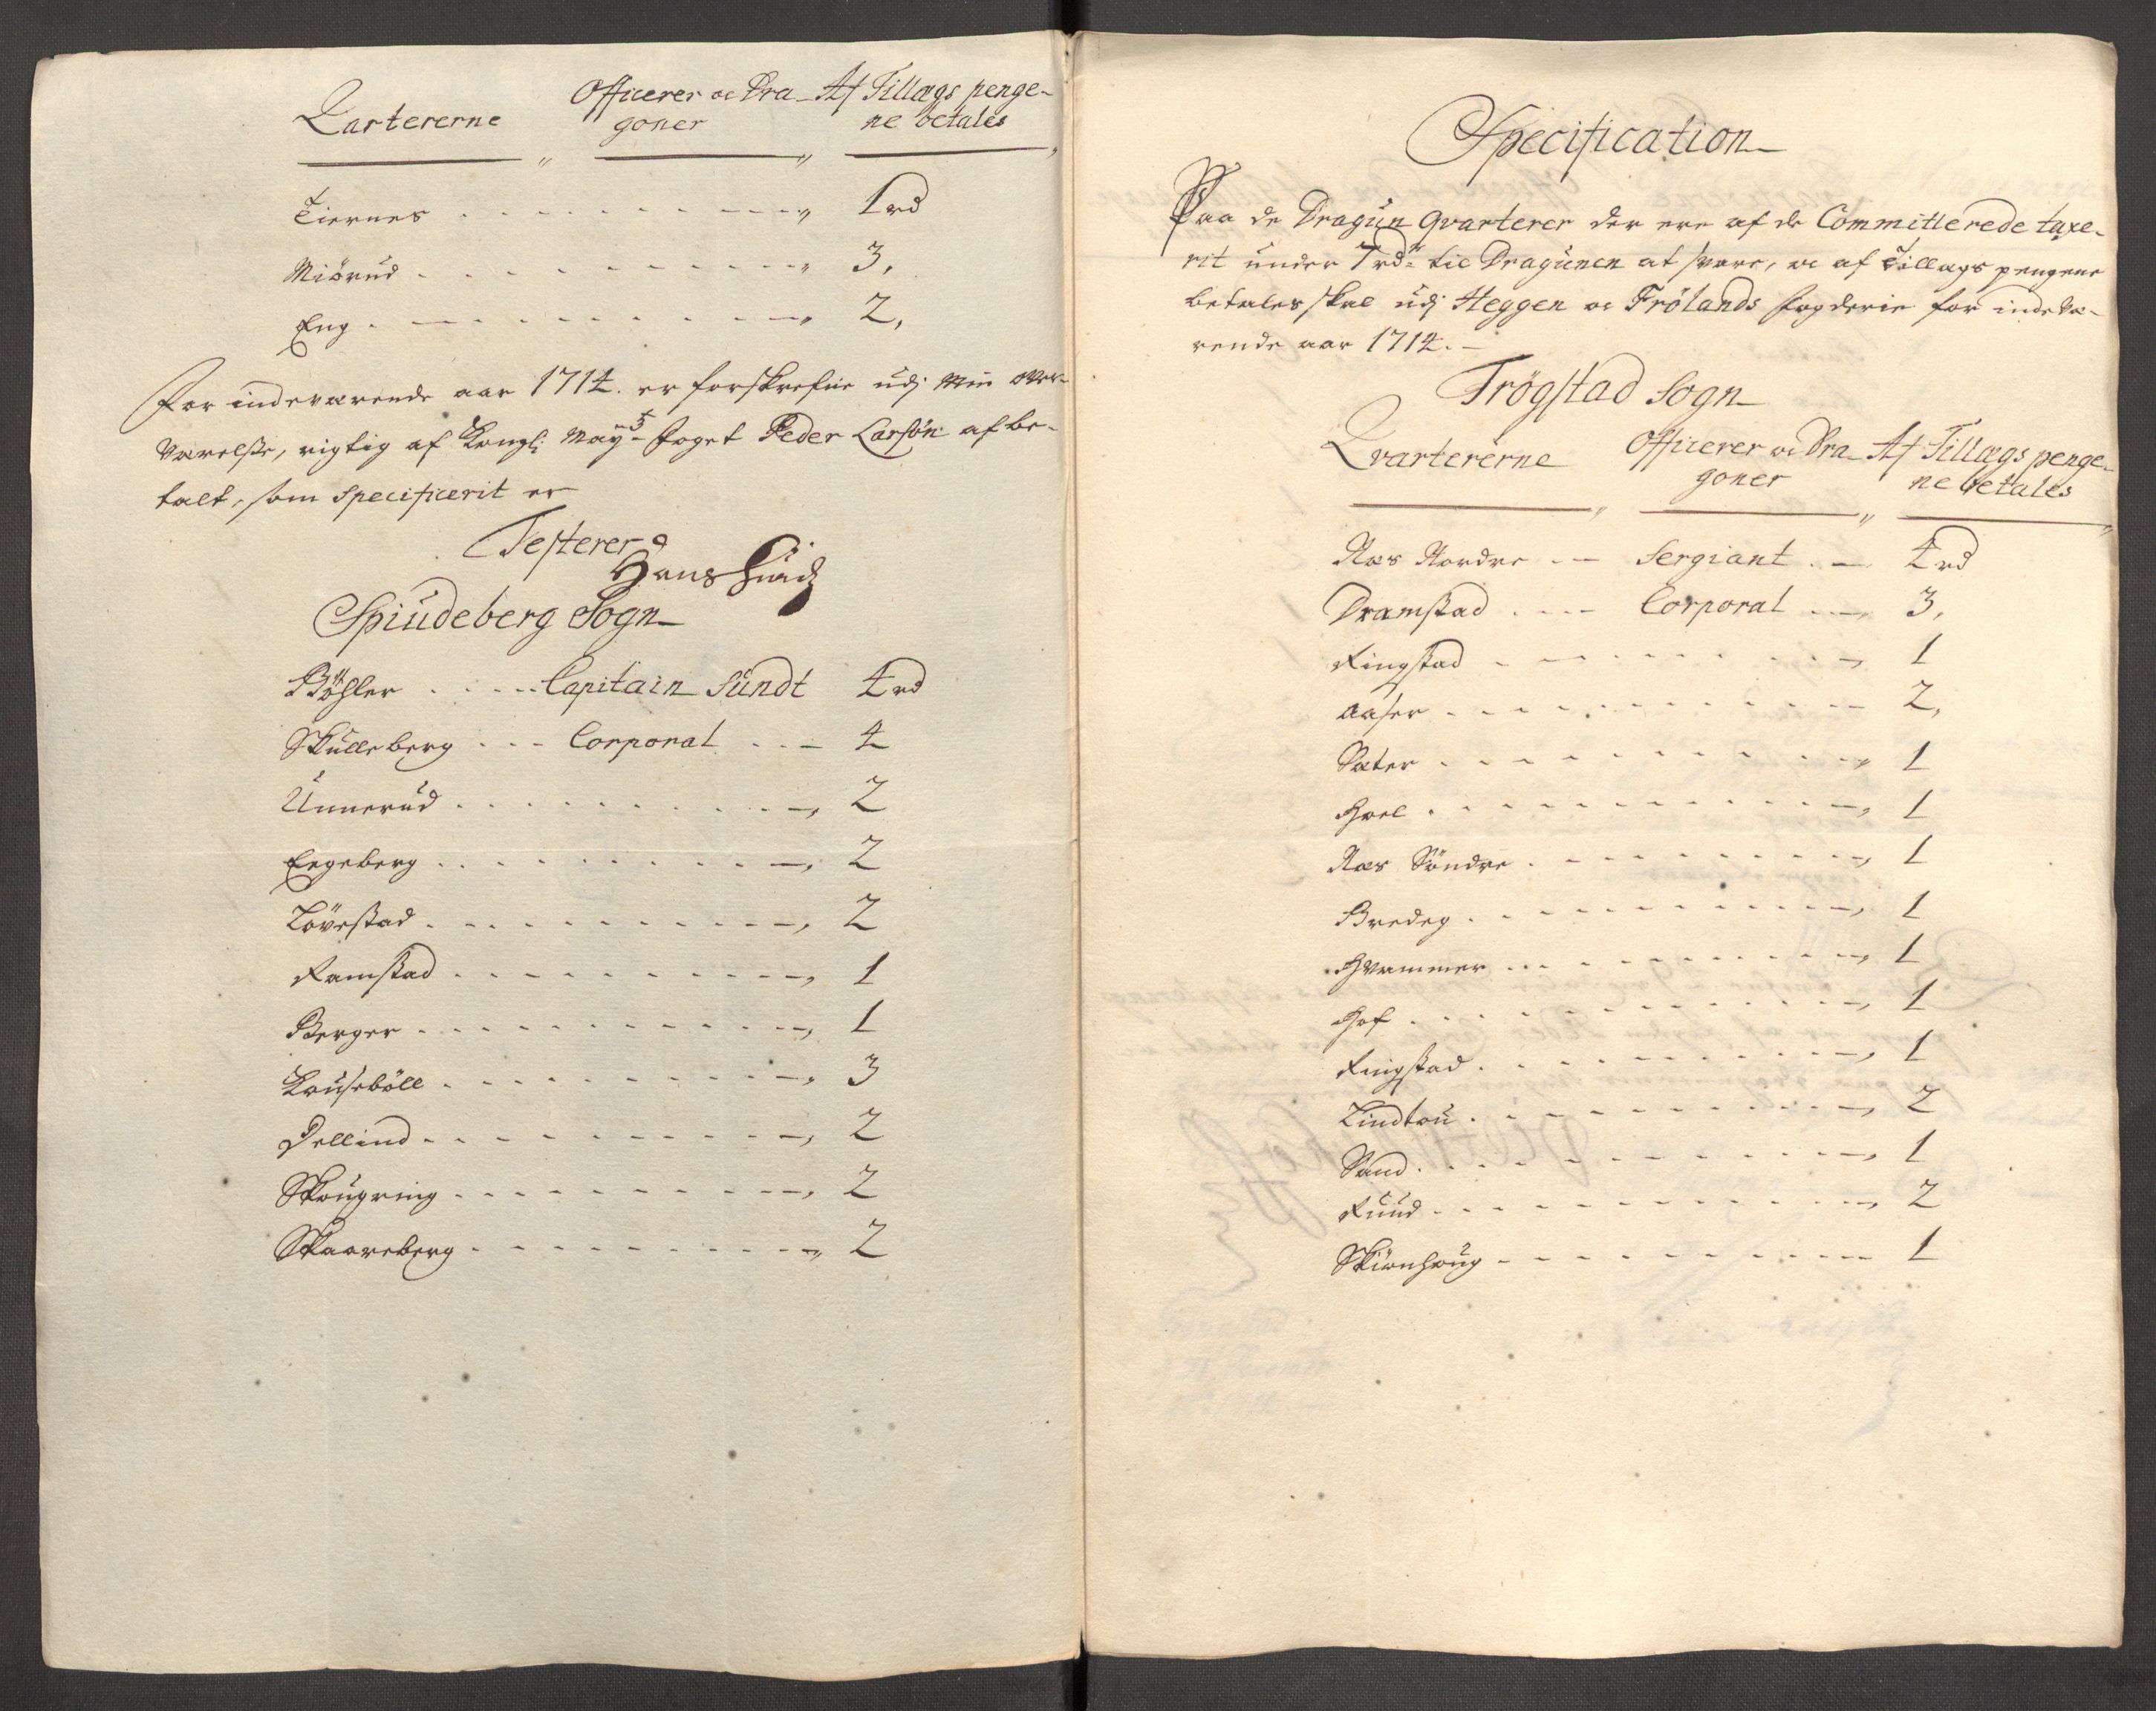 Qartererne
Officerer oc Dra-
goner
Af Tillægs penge-
ne betales
Tiernes 1 rd
Miörud 3,
Eng 2,
For indeværende aar 1714. er forskrefne udj min ower-
værelsse, rigtig af Kongl: May.ts Foget Peder Larsön afbe-
talt, som Specificerit er
Testerer
Hans
Spiudeberg Sogn
Böhler Capitain Sundt 4 rd
Skulleberg Corporal 4
Unnerud 2
Engeberg 2
Lövestad 2
Ramstad 1
Berger 1
Louseböll 3
Dellind 2
Skougrimg 2
Skaareberg 2
Specification
Paa de Dragun Qvarterer der ere af de Committerede taxe-
rit under 7 rdr til Dragunen at svare, oc af Tillægs pengene
betales skal udj Heggen oc Frölands fogderie for indevæ-
rende aar 1714.
Trögstad Sogn
Qvartererne
Officerer oc Dra-
goner
Af Tillægs penge-
ne betales
Næs Nordre Sergiant 4 rd
Dramstad Corporal 3,
Ringstad 1
Aaser 2,
Sæter 1
Hoel 1
Næs Söndre 1
Bredeg 1
Hvammer 1
Hof 1
Ringstad 1
Lindtou 2
Sand 1
Ruud 2
Skiönhoug 1